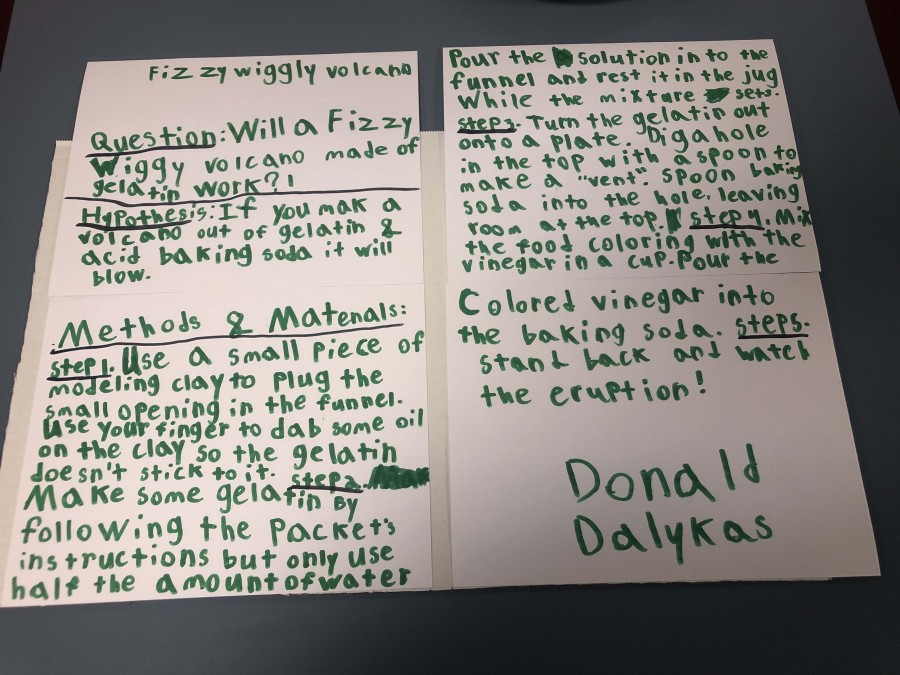 Fizzy wiggly volcano
Question: Will a Fizzy
Wiggy volcano made of
gelatin work?!
Hypothesis: If you mak a
volcano out of gelatin &
acid baking soda it will
blow.
Methods & Materials:
step 1. Use a small piece of
modeling clay to plug the
small opening in the funnel.
Use your finger to dab some oil
on the clay so the gelatin
doesn't stick to it. step 2.
Make some gelatin by
following the packet's
instructions but only use
half the amount of water
Pour the solution in to the
funnel and rest it in the jug
While the mixture sets.
step 3. Turn the gelatin out
onto a plate. Dig a hole
in the top with a spoon to
make a "vent". spoon baking
soda into the hole, leaving
room at the top. step 4. Mix
the food coloring with the
vinegar in a cup. Pour the
Colored vinegar into
the baking soda. step 5.
stand back and watch
the eruption!
Donald
Dalykas